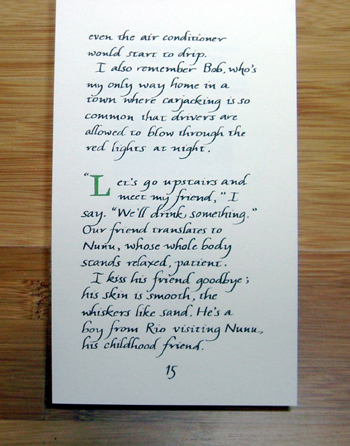 even the air conditioner
would start to drip.
I also remember Bob, who's
my only way home in a
town where carjacking is so
common that drivers are
allowed to blow through the
red lights at night.
"Let's go upstairs and
meet my friend," I
say. "We'll drink something."
Our friend translates to
Nunu, whose whole body
stands relaxed, patient.
I kiss his friend goodbye;
his skin is smooth, the
whiskers like sand. He's a
boy from Rio visiting Nunu,
his childhood friend.
15